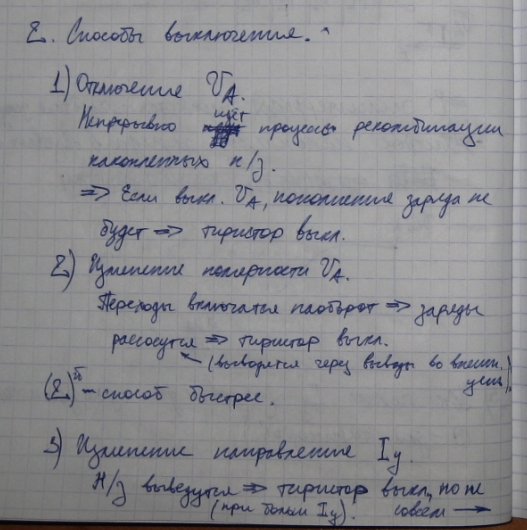 2. Способы выключения.
1) Отключение U_A.
идёт
Непрерывно процесс рекомбинации
накопленных н/з.
=> Если выкл. U_A, пополнения заряда не
будет => тиристор выкл.
2) Изменение полярности U_A.
Переходы включатся наоборот => заряды
рассосутся => тиристор выкл.
(выводятся через выводы во внешн.
цепь)
(2) - способ быстрее.
3) Изменение направления I_у.
Н/з выведутся => тиристор выкл, но не
(при больш I_у). совсем →